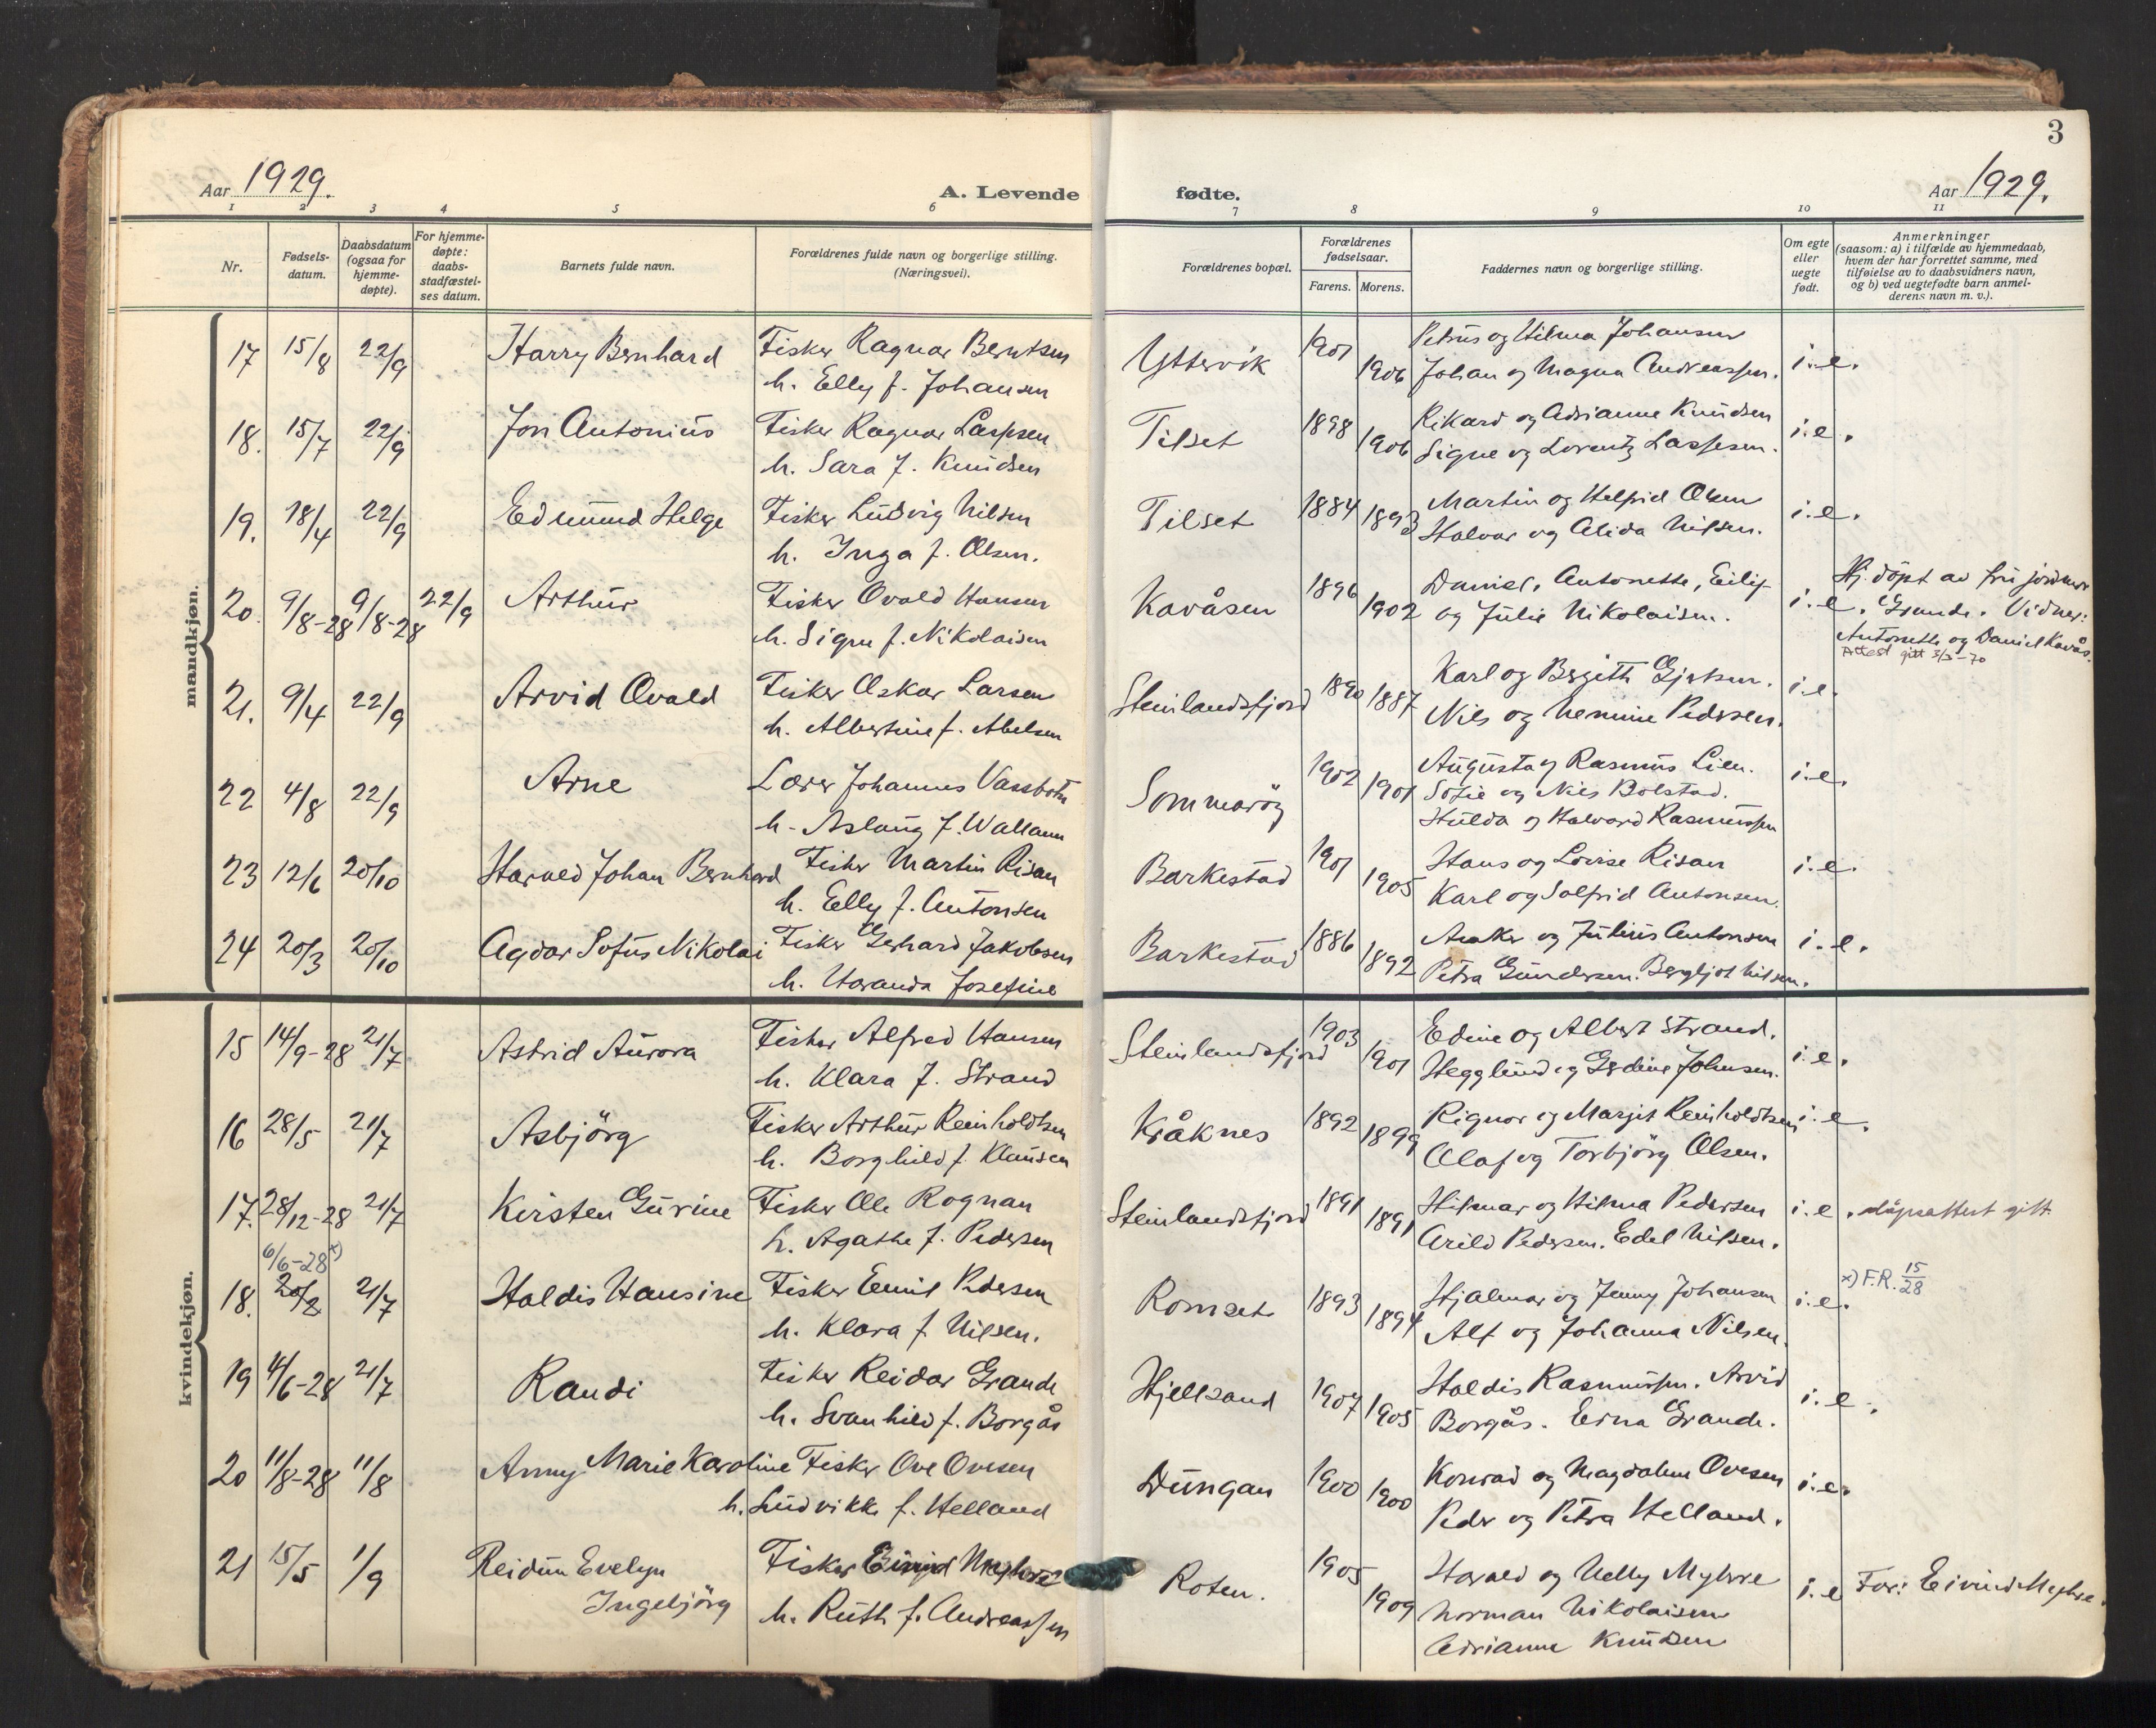 3
Aar 1929.
A. Levende
fødte.
Aar 1929.
1 2 3 4 5 6 7 8 9 10 11
Nr.
Fødsels-
datum.
Daabsdatum
(ogsaa for
hjemme-
døpte).
For hjemme-
døpte:
daabs-
stadfæstel-
ses datum.
Barnets fulde navn.
Forældrenes fulde navn og borgerlige stilling.
(Næringsvei).
Forældrenes bopæl.
Forældrenes
fødselsaar.
Farens. Morens.
Faddernes navn og borgerlige stilling.
Om egte
eller
uegte
født.
Anmerkninger
(saasom: a) i tilfælde av hjemmedaab,
hvem der har forrettet samme, med
tilføielse av to daabsvidners navn,
og b) ved uegtefødte barn anmel-
derens navn m. v.).
mandkjøn.
17 15/8 22/9 Harry Bernhard Fisker Ragnar Berntsen Yttervik 1901 Petrus og Hilma Johansen i.e.
h. Elly f. Johansen 1906 Johan og Magna Andreassen.
18. 15/7 22/9 Jon Antonius Fisker Ragnar Lassesen Tilset 1898 Rikard og Adrianne Knudsen i.e.
h. Sara f. Knudsen 1906 Signe og Lorentz Lassesen.
19. 18/4 22/9 Edmund Helge Fisker Ludvig Nilsen Tilset 1884 1893 Martin og Helfrid Olsen i.e.
h. Inga f. Olsen. Halvar og Alida Nilsen.
20. 9/8-28 9/8-28 22/9 Arthur Fisker Ovald Hansen Kavåsen 1896 Daniel, Antonette, Eilif i.e. Hj. döpt av fru jordmor
h. Signe f. Nikolaisen 1902 og Julie Nikolaisen. Grande. Vidner:
Antonette og Daniel Kavås.
Attest gitt 3/3-70
21. 9/4 22/9 Arvid Ovald Fisker Oskar Larsen Steinlandsfjord 1890 1887 Karl og Bergitte Gjertsen. i.e.
h. Albertine f. Abelsen Nils og Nemine Pedersen.
22 4/8 22/9 Arne Lærer Johannes Vassbotn Sommarøy 1902 1901 Augusta og Rasmus Lien. i.e.
h. Aslaug f. Wallann Sofie og Nils Bolstad.
Hulda og Halvard Rasmussen
23 12/6 20/10 Harald Johan Bernhard Fisker Martin Risan Barkestad 1901 Hans og Lovise Risan i.e.
h. Elly f. Antonsen 1905 Karl og Solfrid Antonsen.
24 20/3 20/10 Agdar Sofus Nikolai Fisker Gerhard Jakobsen Barkestad 1886 og Julius Antonsen i.e.
h. Haranda Josefine 1892 Petra Gundersen. Bergljot Nilsen.
kvindekjøn.
15 14/9-28 21/7 Astrid Aurora Fisker Alfred Hansen Steinlandsfjord 1903 Edine og Albert Strand. i.e.
h. Klara f. Strand 1901 Hegglund og Gerdine Johnsen.
16 28/5 21/7 Asbjörg Fisker Arthur Reinholdtsen Kråknes 1892 Rignor og Margit Reinholdtsen i.e.
h. Borghild f. Klausen 1899 Olaf og Torbjörg Olsen.
17. 28/12-28 21/7 Kirsten Gurine Fisker Ole Rognan Steinlandsfjord 1891 Hilmar og Hilma Pedersen i.e. döpsattest gitt.
h. Agathe f. Pedersen 1891 Arild Pedersen. Edel Nilsen.
6/6-28 x)
18. 20/2 21/7 Haldis Hansine Fisker Emil Pedersen Romset 1893 Hjalmar og Jenny Johansen i.e. x) F.R. 15/28
h. Klara f. Nilsen. 1894 Alf og Johanna Nilsen.
19 4/6-28 21/7 Randi Fisker Reidar Grande Hjellsand 1907 Haldis Rasmussen. Arvid i.e.
h. Svanhild f. Borgås 1905 Borgås. Erna Grande.
20 11/8-28 11/8 Anny Marie Karoline Fisker Ove Ovesen Dungan 1900 Konrad og Magdalene Ovesen i.e.
h. Ludvikke f. Helland 1900 Peder og Petra Helland.
21 15/5 1/9 Reidun Evelyn Fisker Eivind Myhre Roten. 1905 Harald og Nelly Myhre i.e Far: Eivind Myhre.
Ingebjörg h. Ruth f. Andreassen 1909 Norman Nikolaisen
Adrianne Knudsen